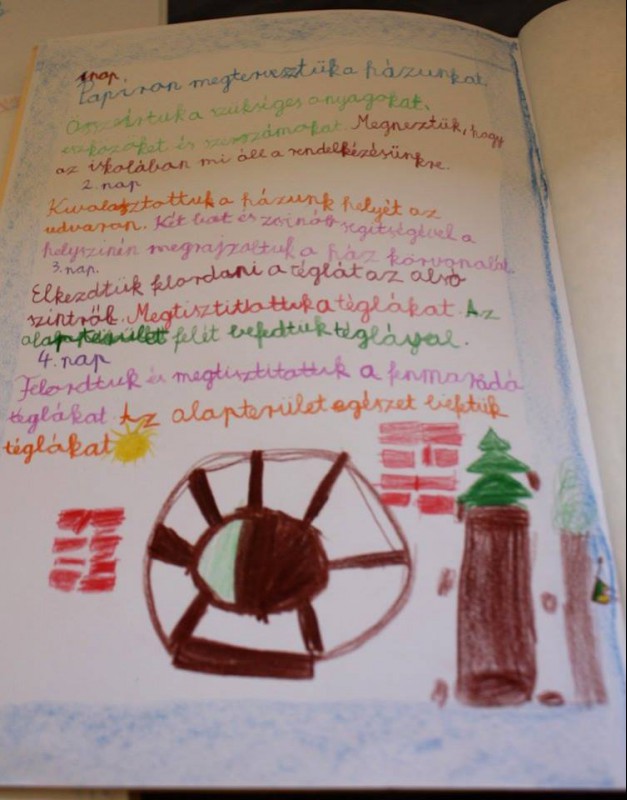 1.nap.
Papíron megterveztük a házunkat.
Összeírtuk a szükséges anyagokat,
eszközöket és szerszámokat. Megnéztük, hogy
az iskolában mi áll a rendelkézésünkre.
2. nap
Kiválasztottuk a házunk helyét az
udvaron. Két bot és zsinór segítségével a
helyszínén megrajzoltuk a ház körvonalát.
3. nap.
Elkezdtük felordani a téglát az alsó
szintről. Megtisztítottuk a téglákat. Az
alapterület felét befedtük téglával.
4. nap
Felordtuk és megtisztitattuk a fenmaradá
téglákat. Az alapterület egészet bieftük
téglákat